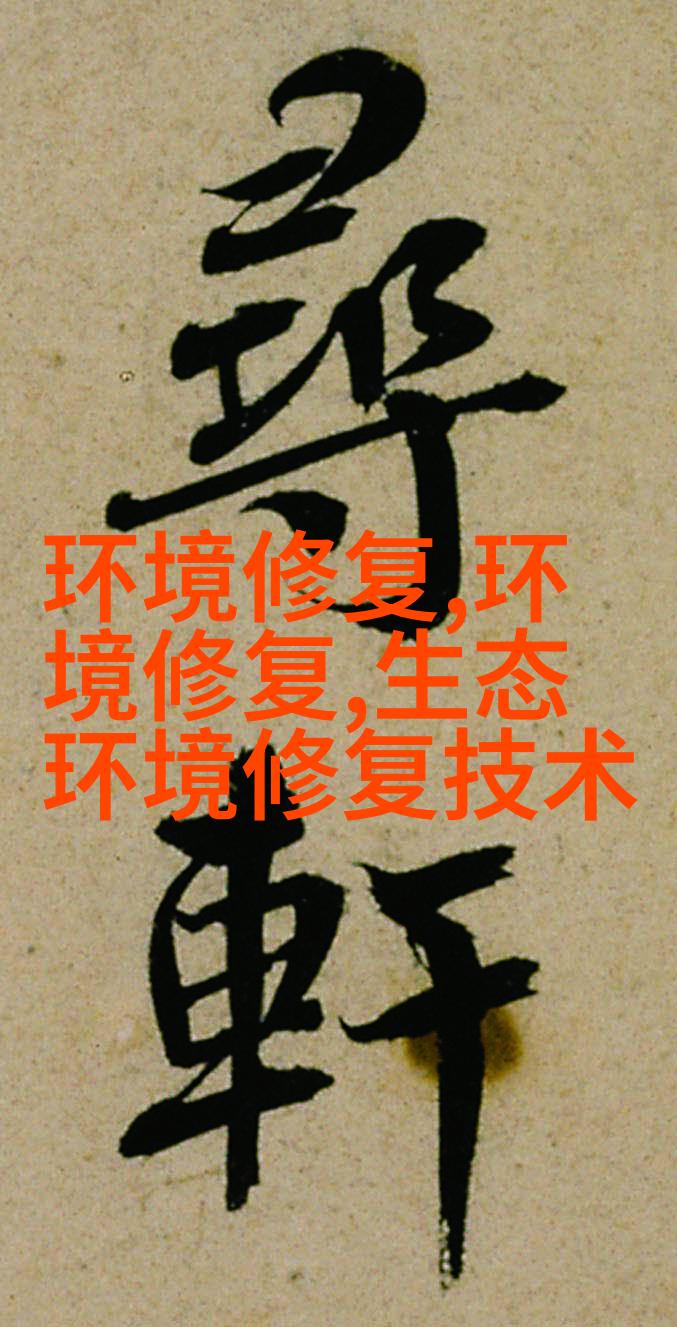 尋
軒
环境修复,环
境修复,生态
环境修复技术